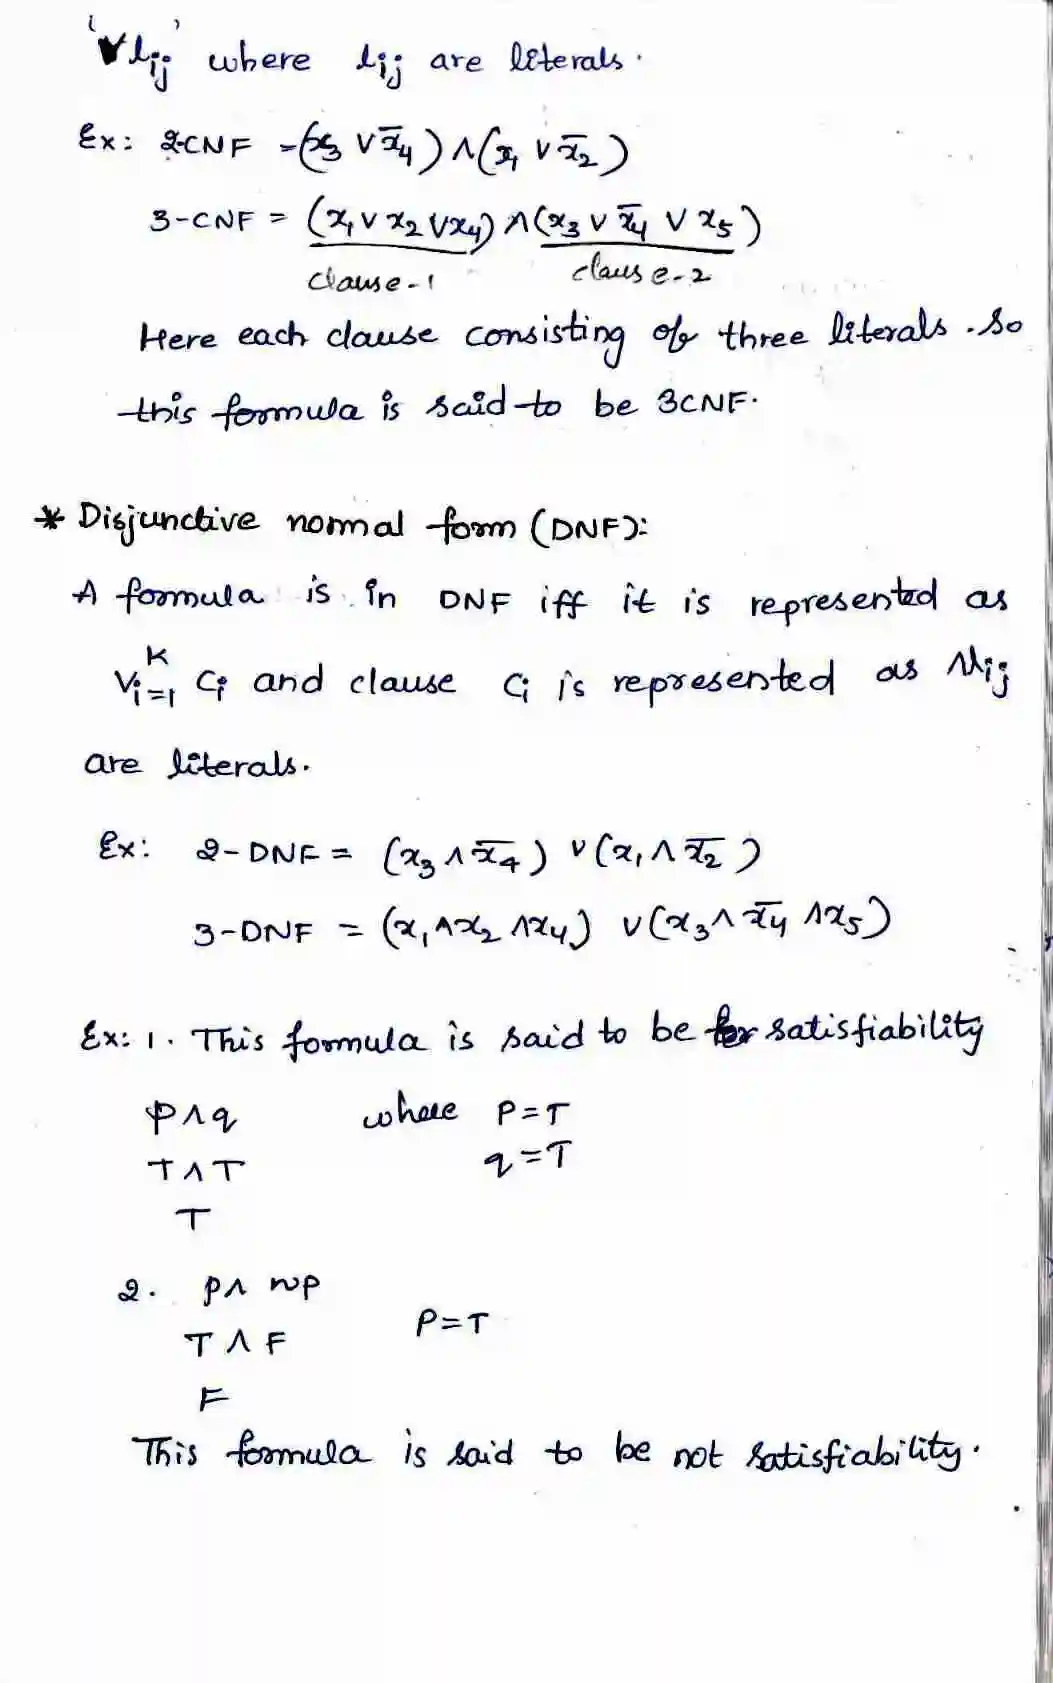 '∨lij' where lij are literals.
Ex: 2-CNF = (x3 ∨ x̄4) ∧ (x1 ∨ x̄2)
3-CNF = (x1 ∨ x2 ∨ x4) ∧ (x3 ∨ x̄4 ∨ x5)
clause-1 clause-2
Here each clause consisting of three literals. So
this formula is said to be 3CNF.
* Disjunctive normal form (DNF):
A formula is in DNF iff it is represented as
∨i=1^K Ci and clause Ci is represented as ∧lij
are literals.
Ex: 2-DNF = (x3 ∧ x̄4) ∨ (x1 ∧ x̄2)
3-DNF = (x1 ∧ x2 ∧ x4) ∨ (x3 ∧ x̄4 ∧ x5)
Ex: 1. This formula is said to be satisfiability
p∧q where P=T
T∧T q=T
T
2. p∧ ~p
T∧F P=T
F
This formula is said to be not satisfiability.